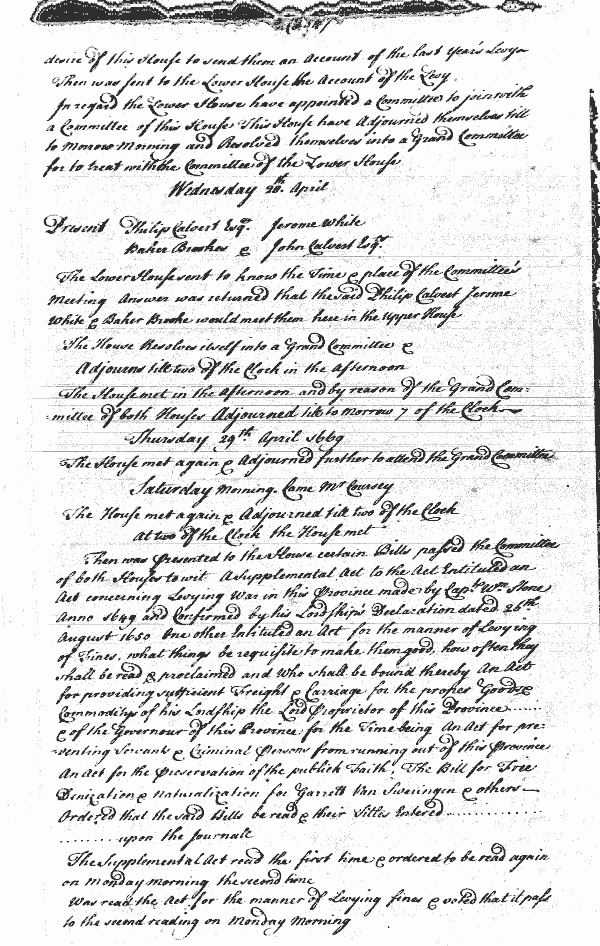 desire of this House to send them an Account of the last Year's Levyes
Then was sent to the Lower House the Account of the Levy.
In regard the Lower House have appointed a Committee to join with
a Committee of this House This House have Adjourned themselves till
to Morrow Morning and Resolved themselves into a Grand Committee
for to treat with the Committee of the Lower House
Wednesday 28th April
Present Philip Calvert Esqr. Jerome White
Baker Brookes & John Calvert Esqr.
The Lower House sent to know the Time & place of the Committee's
Meeting Answer was returned that the said Philip Calvert Jerome
White & Baker Brooke would meet them here in the Upper House
The House Resolves itself into a Grand Committee &
Adjourns till two of the Clock in the Afternoon
The House met in the Afternoon and by reason of the Grand Com-
mittee of both Houses Adjourned till to Morrow 7 of the Clock
Thursday 29th April 1669
The House met again & Adjourned further to attend the Grand Committee
Saturday Morning. Came Mr Coursey
The House met again & Adjourned till two of the Clock
At two of the Clock the House met
Then was Presented to the House certain Bills passed the Committee
of both Houses to wit A Supplemental Act to the Act Entituled an
Act concerning Levying War in this Province made by Capt. Wm Stone
Anno 1649 and Confirmed by his Lordship's Declaration dated 26th
August 1650 One other Entituled an Act for the manner of Levying
of Fines, what things be requisite to make them good, how often they
shall be read & proclaimed and Who shall be bound thereby An Act
for providing sufficient Freight & Carriage for the proper Goods &
Commoditys of his Lordship the Lord Proprietor of this Province ......
& of the Governour of this Province for the Time being An Act for pre-
venting Servants & Criminal Persons from running out of this Province
An Act for the Preservation of the publick Faith, The Bill for Free
Denization & Naturalization for Garrett Van Sweringen & others—
Ordered that the said Bills be read & their Titles Entered ..............
......... upon the Journall
The Supplemental Act read the first time & ordered to be read again
on Monday morning the second time
Was read the Act for the manner of Levying fines & voted that it pass
to the second reading on Monday Morning